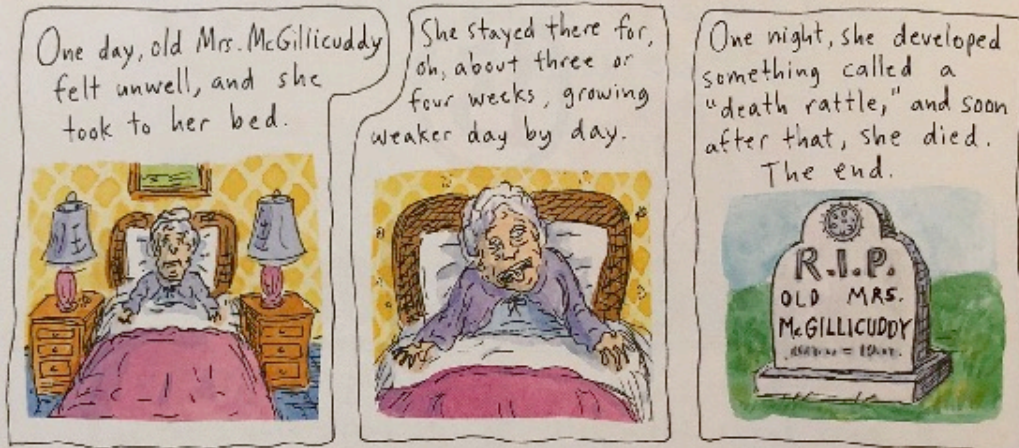 One day, old Mrs. McGillicuddy
felt unwell, and she
took to her bed.
She stayed there for,
oh, about three or
four weeks, growing
weaker day by day.
One night, she developed
something called a
"death rattle," and soon
after that, she died.
The end.
R.I.P.
OLD MRS.
McGILLICUDDY